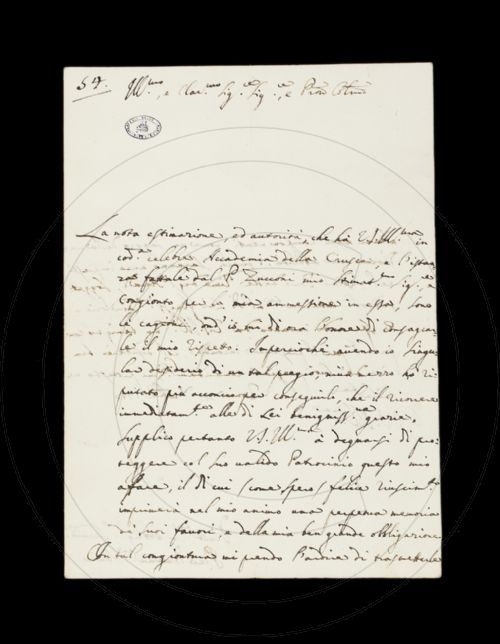 57. Ill.mo, e Clar.mo Sig.e Sig.e, e Pron Col.mo
La nota estimazione, ed autorità, che ha V.S. Ill.ma in
cod.a celebre Accademia della Crusca, e l'istan
za fattale dal P. Zucchi mio stimat.mo Sig.e, e
Congionto per la mia ammessione in essa, sono
le cagioni, ond'io mi do ora l'onore di
le il mio rispetto. Imperciochè avendo io singu
lar desiderio di un tal pregio, mezzo ho ri
putato più acconcio per conseguirlo, che il ricorrere
immediatam.e alla di Lei benigniss.a grazia.
Supplico pertanto V.S. Ill.ma à degnarsi di pro
teggere col suo valido Patrocinio questo mio
affare, il di cui (come spero) felice riuscim.to
imprimerà nel mio animo una perpetua memoria
de' suoi favori, e della mia ben grande obbligazione
In tal congiontura mi prendo l'ardire di trasmetterle